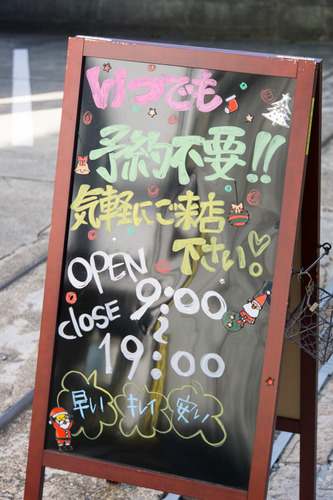 いつでも
予約不要!!
気軽にご来店
下さい♡
OPEN 9:00
~
CLOSE 19:00
早い キレイ 安い